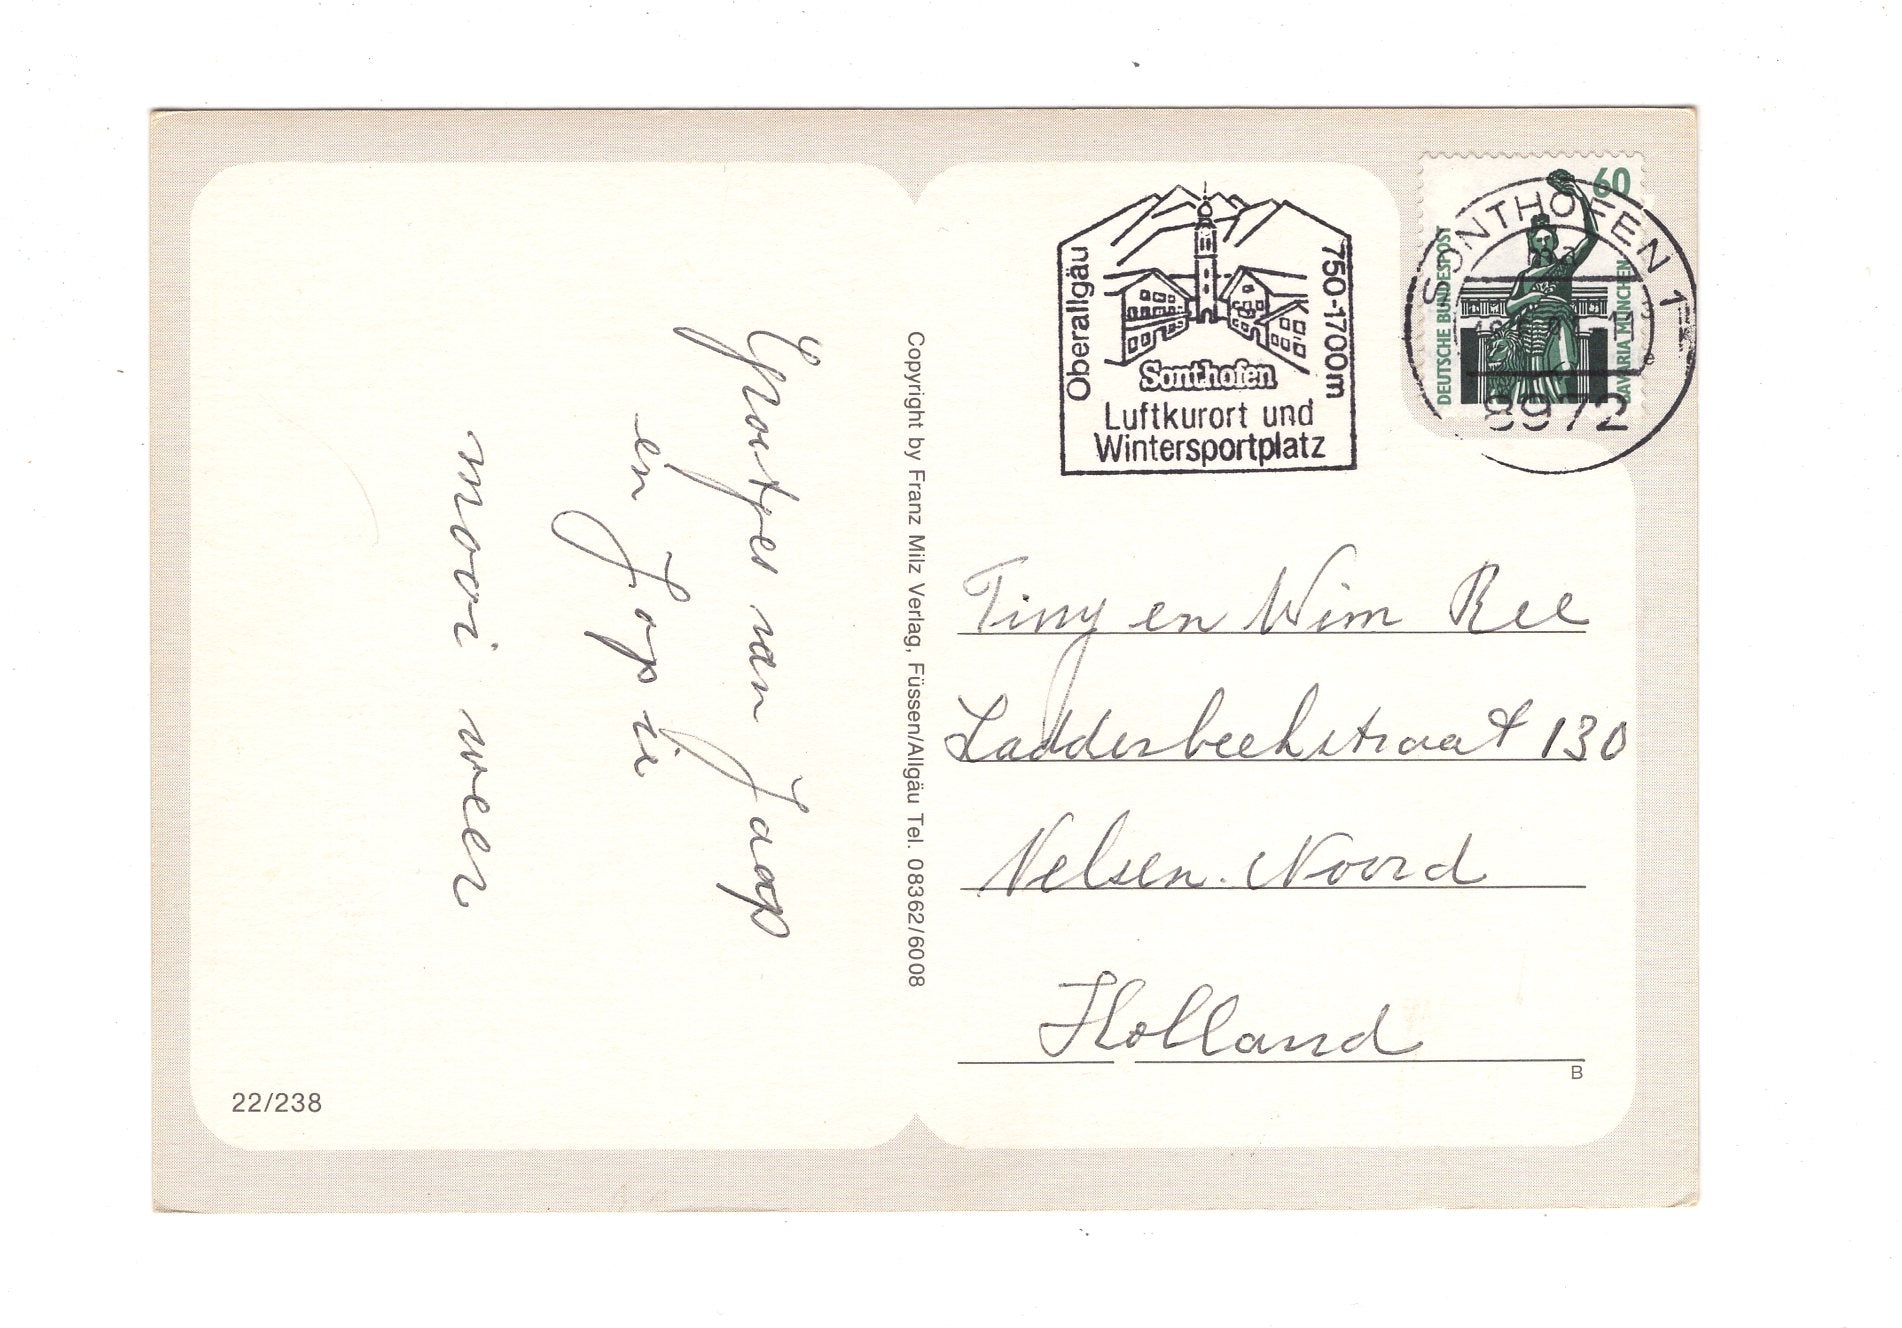 Groetjes van Jaap
en Jopie
mooi weer
22/238
Copyright by Franz Milz Verlag, Füssen/Allgäu Tel. 08362/6008
Oberallgäu
750-1700m
Sonthofen
Luftkurort und
Wintersportplatz
60
DEUTSCHE BUNDESPOST
BAVARIA MÜNCHEN
SONTHOFEN 1
8972
Tiny en Wim Ree
Ladderbeekstraat 130
Velsen-Noord
Holland
B